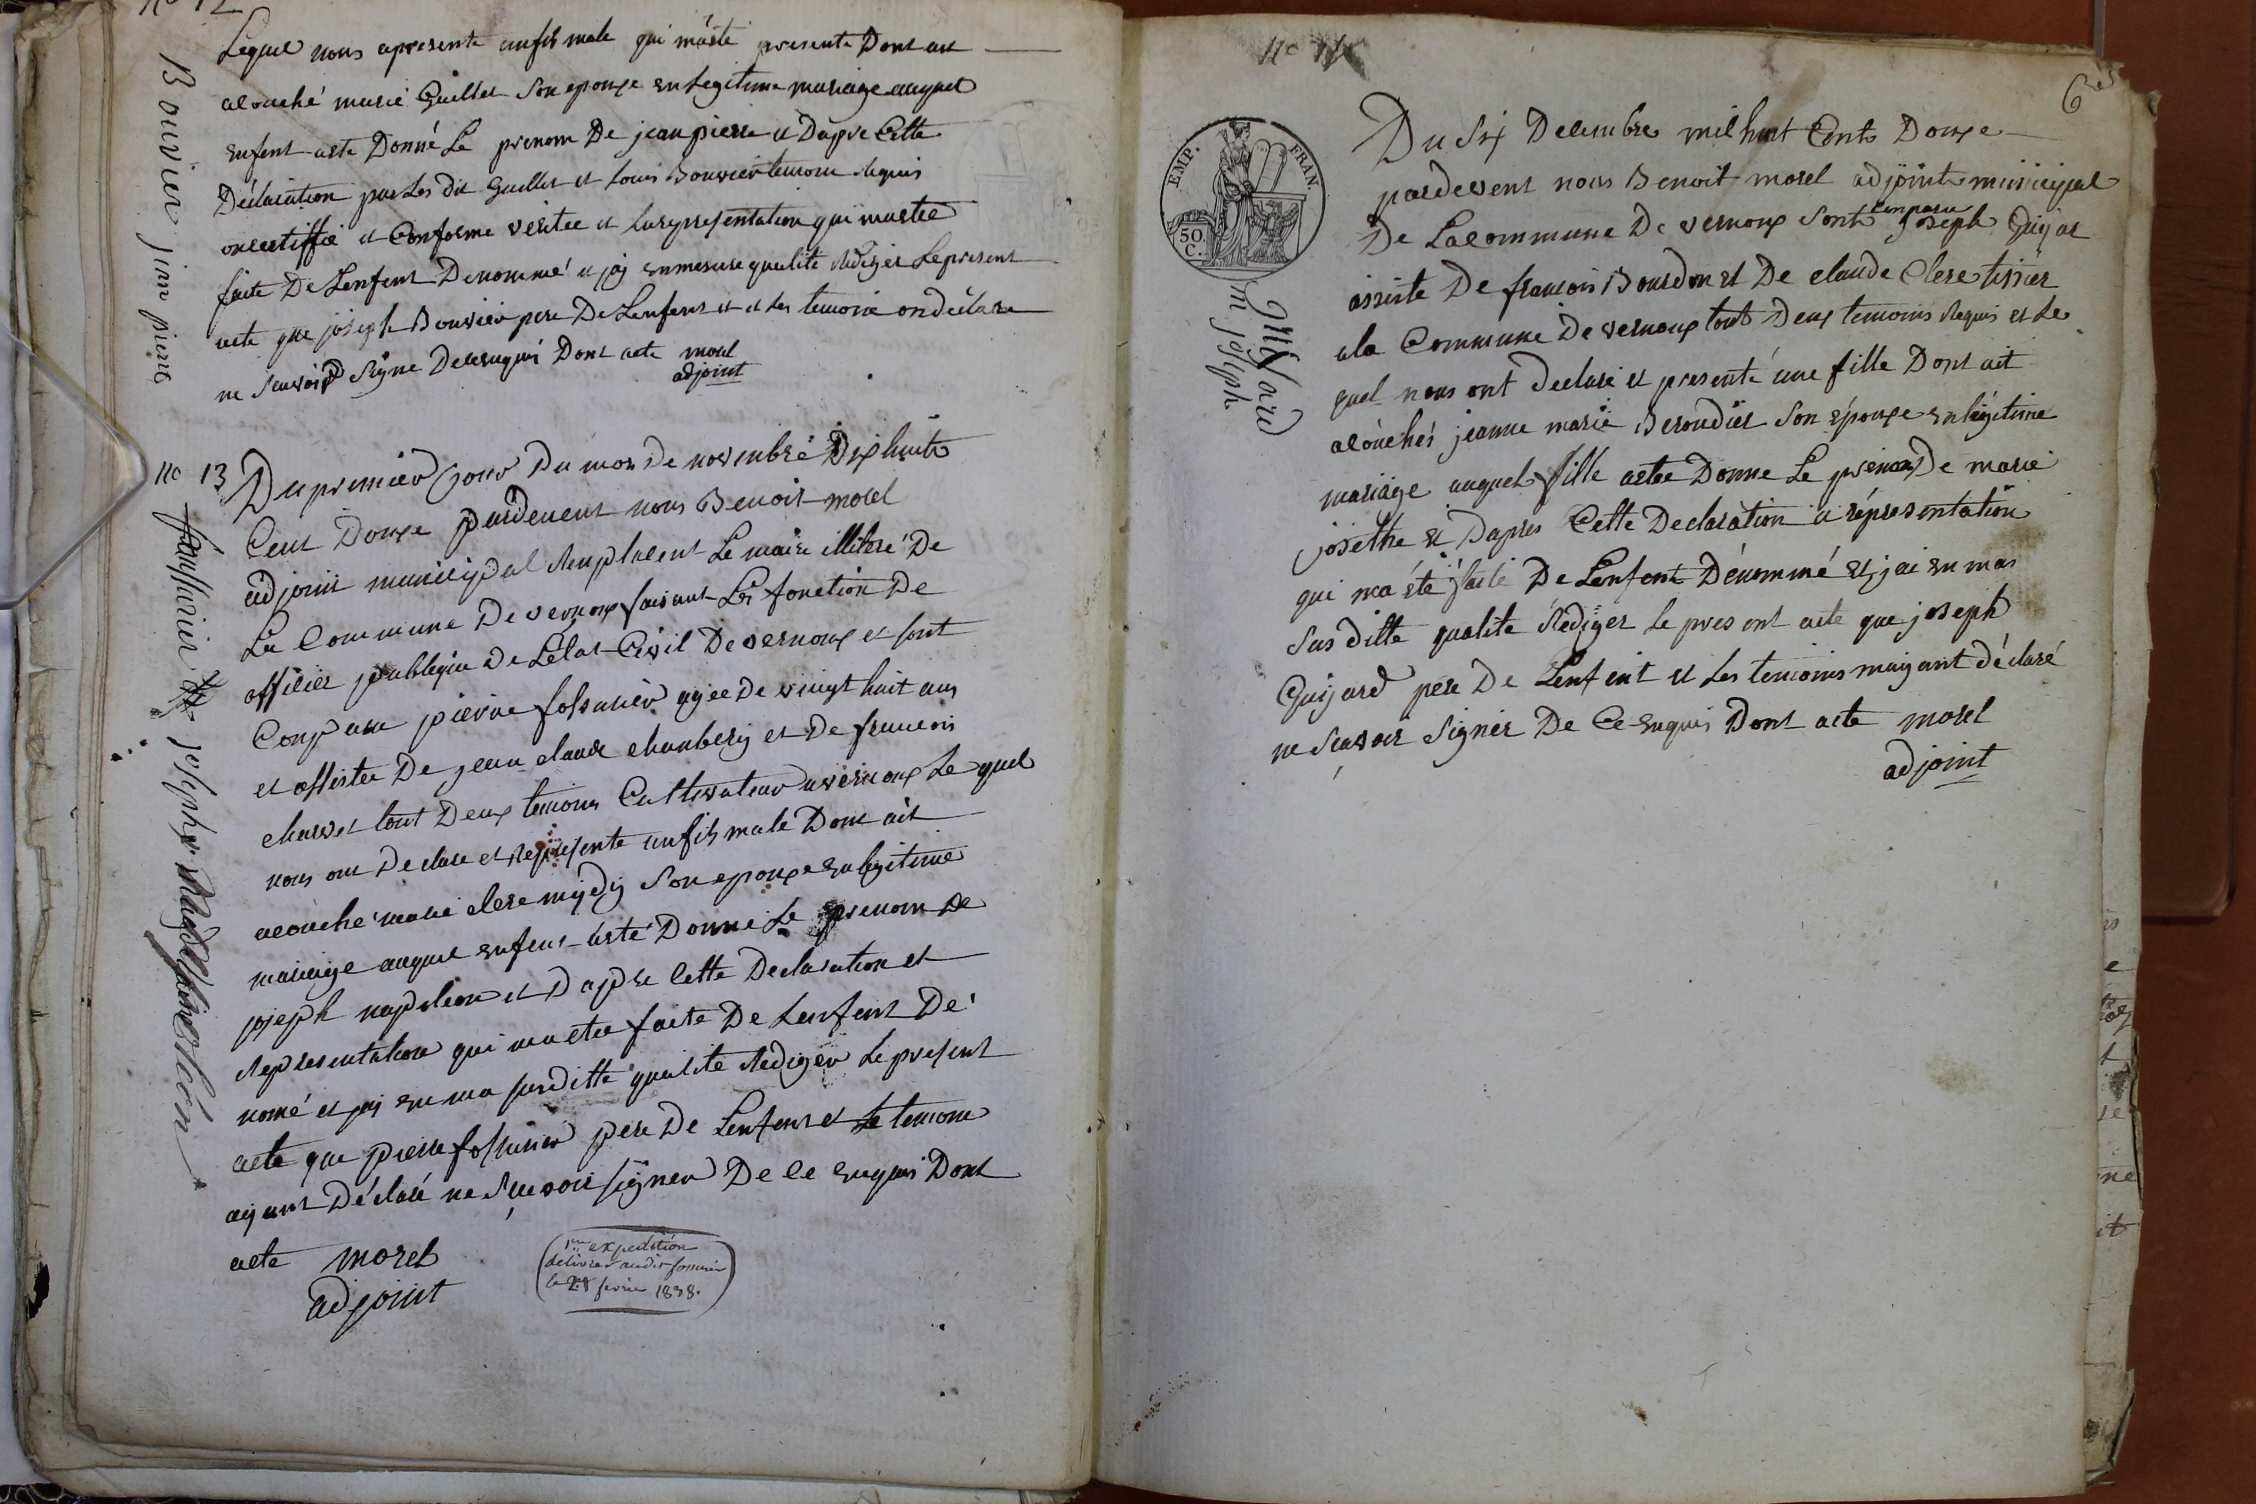 no 12
Bouvier jean pierre
Lequel nous apresente unfils male qui máeté presenté Dont ait
acouché marie Guillet Son epouse enlegitime mariage auquel
enfent aete Donné Le prenom De jeanpierre et Dapre Cette
Déclaration par Les dit Guillet et louis Bouvier temoin Requis
oncertiffié et Conforme verité et la representation qui maetee
faite De Lenfent Denommé et jaj enmesure qualité Rediger Lepresent
acte que joseph Bouvier pere De Lenfent et et les temoins on déclare
ne Scavoir Signe Decenquis Dont acte morel
adjoint
no 13
joseph
Du premier jour Du mois De novembre Dixhuit
Cent Douze pardevent nous Benoit morel
adjoint municipal Remplacent Le maire De
La Commune De vernoux faisant Les fonction De
officier publique De Létat Civil De vernoux et sont
Comparu pierre fossurier agée De vingt huit ans
et assistée De jean claude chamberij et De francois
charvet tout Deux temoins Cultivateur avernoux Le quel
nous ont Declare et Représente unfils male Dont ait
acouché marie clere mijdij Son epouse enlegitime
mariage auquel enfent aeté Donné Le prenom De
joseph napoleon et D apre Cette Declaration et
Representation qui ma etee faite De Lenfent De
nomé et jaj en ma susditte qualité Rediger Le present
acte que pierre fossurier pere De Lenfent et Le temoin
ayant Déclaré ne Scavoir signer De ce enquis Dont
acte morel
adjoint
1re expedition
delivrée audit
le 28 fevrier 1838.
no 14
6
EMP. FRAN.
50
C.
Guijard
m joseph
Du Six Decembre mil huit Cents Douze
pardevent nous Benoit morel adjoint municipal
De Lacommune De vernoux Sont comparu joseph Guijar
assiste De francois Bourdon et De claude Clere tissier
ala Commune De vernoux tout Deux temoins Requis et Le
quel nous ont Declaré et presenté une fille Dont ait
acouchés jeanne marie Beroudier Son épouse enlégitime
mariage auquel fille aetee Donne Le prenom De marie
josethe et Dapres Cette Declaration et répresentation
qui ma été faite De Lenfent Dénommé et jai en mas
Sus ditte qualité Rédiger Le present acte que joseph
Guijard pere De Lenfent et Les temoins mayant déclaré
ne Scavoir Signer De Ce enquis Dont acte morel
adjoint